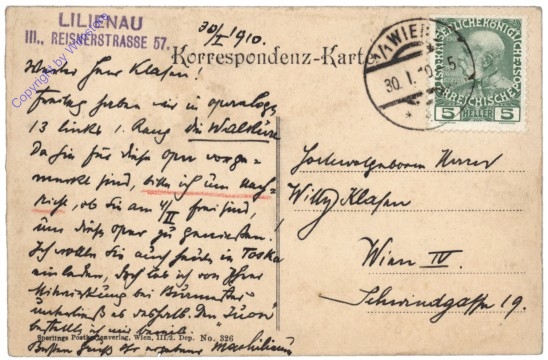 LILIENAU
III., REISNERSTRASSE 57.
Copyright by
30/I 1910.
Korrespondenz-Karte
1/1 WIEN
30. I. 10
5 HELLER 5
Werter Herr Klasen!
Freitag haben wir in Opernloge
13 links 1. Rang die Walküre
Da Sie für diese Oper vorge-
merkt sind, bitte ich um Nach-
richt, ob Sie am 4/II frei sind,
um diese Oper zu genießen.
Ich wollte Sie auch heute in Toska
einladen, doch las ich von Ihrer
Mitwirkung bei
unterließ es deshalb. Den
bestelle ich
Besten Gruß Ihr ergebener Maximilian
Hochwolgeboren Herrn
Willy Klasen
Wien IV.
Schwindgasse 19.
Sperlings Postkartenverlag, Wien, III./2. Dep. No. 326